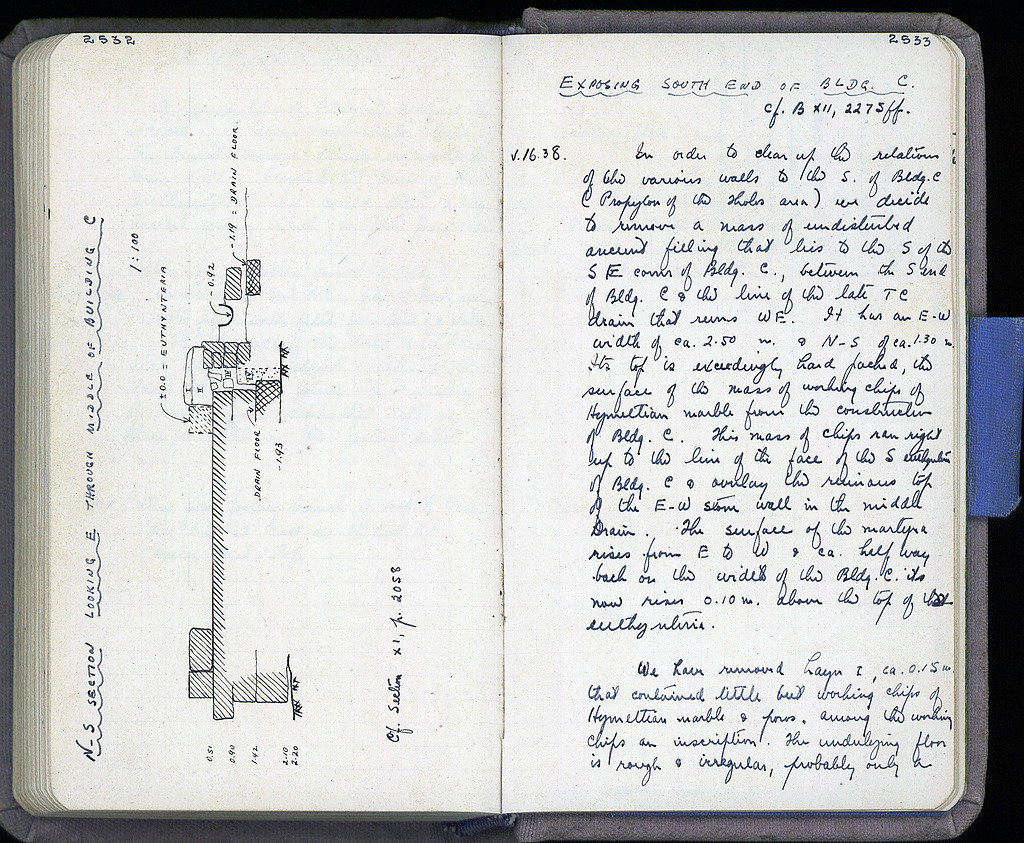 2532
N-S SECTION LOOKING E THROUGH MIDDLE OF BUILDING C
1:100
±0.0 = EUTHYNTERIA
-0.92
-1.19 = DRAIN FLOOR
I
II
III
IV
DRAIN FLOOR
-1.93
0.51
0.90
1.42
2.10
2.20
Cf. Section XI, p. 2058
2533
EXPOSING SOUTH END OF BLDG. C.
Cf. B XII, 2275ff.
V.16.38. In order to clear up the relations
of the various walls to the S. of Bldg. C
(Propylon of the Tholos area) we decide
to remove a mass of undisturbed
ancient filling that lies to the S of the
SE corner of Bldg. C., between the S end
of Bldg. C & the line of the late TC
drain that runs WE. It has an E-W
width of ca. 2.50 m. & N-S of ca. 1.30 m.
Its top is exceedingly hard packed, the
surface of the mass of working chips of
Hymettian marble from the construction
of Bldg. C. This mass of chips ran right
up to the line of the face of the S euthynteria
of Bldg. C & overlay the ruinous top
of the E-W stone wall in the middle
Drain. The surface of the
rises from E to W & ca. half way
back on the width of the Bldg. C. its
now rises 0.10 m. above the top of the
euthynteria.
We have removed Layer I, ca. 0.15 m
that contained little but working chips of
Hymettian marble & poros, among the working
chips an inscription. The underlying floor
is rough & irregular, probably only a